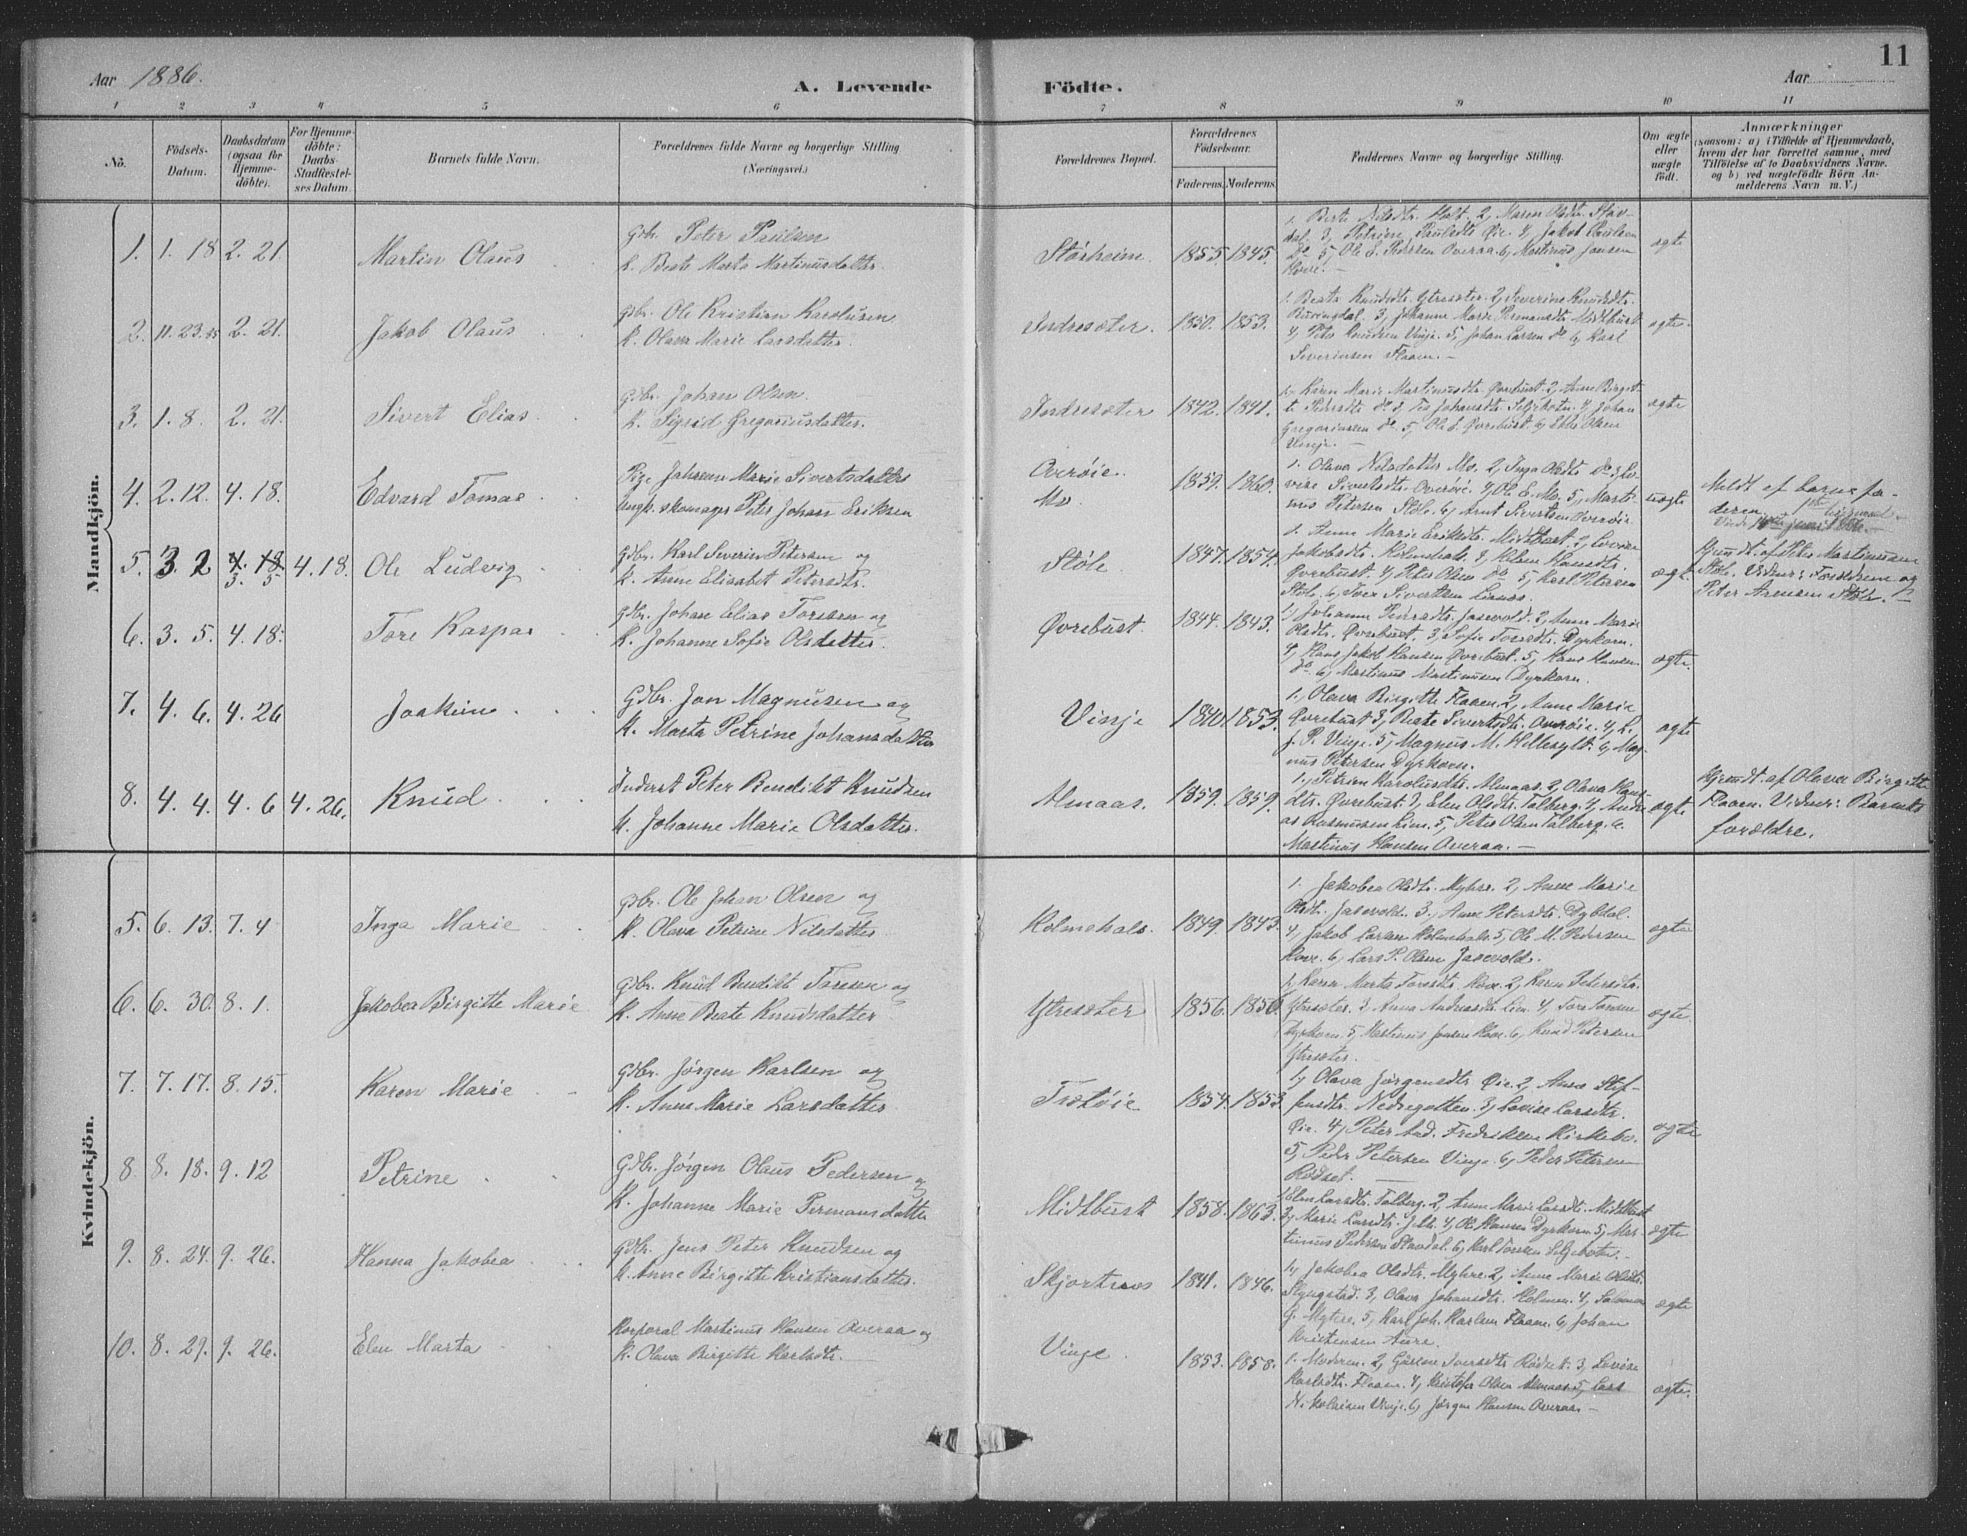 Aar 1886.
A. Levende Födte.
Aar
11
1 2 3 4 5 6 7 8 9 10 11
No.
Födsels-Datum.
Daabsdatum (ogsaa for Hjemmedöbte).
For Hjemmedöbte: Daabs-Stadfæstelses Datum.
Barnets fulde Navn.
Forældrenes fulde Navne og borgerlige Stilling
(Næringsvei.)
Forældrenes Bopæl.
Forældrenes Födselsaar.
Faderens. Moderens.
Faddernes Navne og borgerlige Stilling.
Om ægte eller uægte födt.
Anmærkninger
(saasom: a) i Tilfælde af Hjemmedaab,
hvem der har forrettet samme, med
Tilföielse af to Daabsvidners Navne.
og b) ved uægtefödte Börn An-
melderens Navn m. V.)
Mandkjön.
1. 1. 18 2. 21. Martin Olaus
Gbr. Peter Paulsen
K. Beate Marta Martinusdatter.
Størheim. 1855. 1845.
1. Berte Nilsdtr. Holt. 2, Maren Olsdtr. Stav-
dal. 3, Petrine Paulsdtr. Øie. 4, Jakob Paulsen
Do 5, Ole E. Pedersen Overaa. 6, Martinus Jonsen
Hove. —
ægte
2. 11. 23. 85 2. 21. Jakob Olaus
Gbr. Ole Kristian Karolusen
K. Olava Marie Larsdatter.
Indresæter. 1850. 1853.
1. Beate Knudsdtr. Ytresæter. 2, Severine Knudsdtr.
3, Johanne Marie Permansdtr. Midtbust
4, Peter Knudsen Vinje. 5, Johan Larsen do 6, Karl
Severinsen Flaaen. —
ægte.
3. 1. 8. 2. 21. Sivert Elias
Gbr. Johan Olsen.
K. Sigrid Gregoriusdatter.
Indresæter 1842. 1841.
1, Karen Marie Martinusdtr. Øvrebust. 2, Anne Birgit-
te Pedersdtr do 3, Johansdtr. Seljebotn. 4, Johan
Gregoriussen do. 5, Ole S. Øvrebust. 6, Olsen
Vinje. —
ægte
4. 2. 12. 4. 18. Edvard Tomas
Pige Jahanne Marie Sivertsdatter
Ungk. skomager Peter Johan Eriksen
Overøie.
Mo 1859. 1860.
1. Olava Nilsdatter Mo. 2, Inga Olsdtr do 3, Lo-
vise Sivertsdtr. Overøie. 4, Ole E. Mo. 5, Marti-
nus Petersen Støle. 6, Arnt Sivertsen Overøie.
uægte
Meldt af barnefa-
deren.
5. 3 2 4. 18 3. 5 4. 18. Ole Ludvig
Gdbr. Karl Severin Petersen og
K. Anne Elisabet Petersdtr.
Støle. 1847. 1854.
1. Anne Marie Eriksdtr. Midtbust. 2, Lovise
Jakobsdtr. Holmehals. 3, Elen Hansdtr.
Øvrebust. 4, Peter Olsen do 5, Karl Petersen
Støle. 6, Iver Sivertsen
ægt.
Hjemdt. af Peter Martinussen
Støle. Vidner: Forældrene og
Peter Arensen Støle.
6. 3. 5. 4. 18. Tore Kaspar
Gdbr. Johan Elias Torsten og
K. Johanne Sofie Olsdatter.
Øvrebust. 1844. 1843.
1, Johanne Pedersdtr. Jasevold. 2, Anne Marie
Olsdtr. Øvrebust. 3, Sofie Toresdtr. Dyrkorn.
4, Hans Jakob Hansen Øvrebust. 5, Hans Hansen
do 6, Martinus Martinusen Dyrkorn.
ægte.
7. 4. 6. 4. 26 Joakim
Gdbr. Jon Magnusen og
K. Marta Petrine Johansdatter
Vinje 1840. 1853.
1, Olava Birgitte Flaaen. 2, Anne Marie
Øvrebust 3, Beate Sivertsdtr. Overøie. 4, L.
J. P. Vinje. 5, Magnus M. Hellesylt. 6, Mag-
nus Petersen Dyrkorn.
ægte
8. 4. 4. 4. 6 4. 26. Knud
Inderst Peter Bendikt Knudsen
K. Johanne Marie Olsdatter.
Almaas. 1859. 1859.
1, Petrine Karolusdtr. Almaas. 2, Olava Hans-
dtr. Øvrebust. 3, Elen Olsdtr. Talberg. 4, Andre-
as Rasmussen Liem. 5, Peter Olsen Talberg. 6.
Martinus Hansen Overaa. —
ægte
Hjemdt. af Olava Birgitte
Flaaen. Vidner: Barnets
forældre.
Kvindekjön.
5. 6. 13. 7. 4 Inga Marie
Gbr. Ole Johan Olsen og
K. Olava Petrine Nilsdatter
Holmehals. 1849. 1843.
1. Jakobea Olsdtr. Myhre. 2, Anne Marie
Olsdt. Jasevold. 3, Anne Petersdtr. Dybdal.
4, Jakob Larsen Holmehals. 5, Ole M. Pedersen
Hove. 6, Lars P. Olsen Jasevold.
ægte
6. 6. 30. 8. 1. Jakobea Birgitte Marie
Gdbr. Knud Bendikt Torsen og
K. Anne Beate Knudsdatter
Ytresæter 1856. 1856.
1, Karen Marta Toresdtr. Hove. 2, Karen Petersdtr.
Ytresæter. 3, Anna Andreasdtr. Lien 4, Tore Torsen
Dyrkorn 5, Martinus Jonsen Hove. 6, Knud Petersen
Ytresæter.
ægte
7. 7. 17. 8. 15. Karen Marie
Gdbr. Jørgen Karlsen og
K. Anne Marie Larsdatter
1854. 1853.
1, Olava Jørgensdtr. Øie. 2, Anne Stef-
fensdtr. Nedregotten. 3, Lovise Larsdtr.
Øie. 4, Peter And. Fredriksen Kirkebø.
5, Peder Petersen Vinje. 6, Peder Petersen
Rødset. —
ægte
8 8. 18. 9. 12 Petrine
Gdbr. Jørgen Olaus Pedersen og
K. Johanne Marie Permansdatter
Midtbust 1858. 1863.
1, Elen Larsdtr. Talberg. 2, Anne Marie Larsdt. Midtbust
3, Marie Larsdtr. 4, Ole Hansen Dyrkorn. 5, Mar-
tinus Pedersen Stavdal. 6, Karl Torsen Seljebotn. —
ægte
9. 8. 24. 9. 26. Hanna Jakobea
Gdbr. Jens Peter Knudsen og
K. Anne Birgitte Kristiansdatter.
Skjortnes 1841. 1846.
1, Jakobea Olsdtr. Myhre. 2, Anne Marie Olsdtr.
Slyngstad. 3, Olava Johansdtr. Holmen. 4, Salomon
G. Myhre. 5, Karl Joh. Karlsen Flaaen. 6, Johan
Kristensen Aure.
ægte
10. 8. 29. 9. 26. Elen Marta
Korporal Martinus Hansen Overaa og
K. Olava Birgitte Karlsdtr.
Vinje. 1853. 1858.
1. Moderen. 2, Gurine Iversdtr. Rødset. 3, Lovise
Karlsdtr. Flaaen. 4, Kristofer Olsen Almaas. 5, Lars
Nikolaisen Vinje. 6, Jørgen Hansen Overaa. —
ægte.